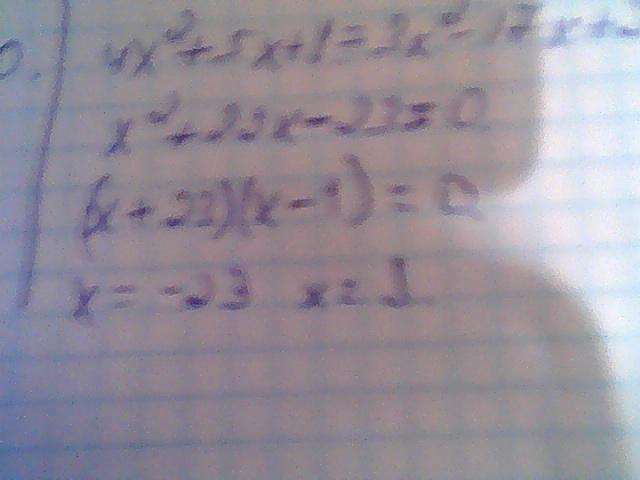 0. 4x²+5x+1=3x²-17x+
x²+22x-23=0
(x+23)(x-1)=0
x=-23 x=1